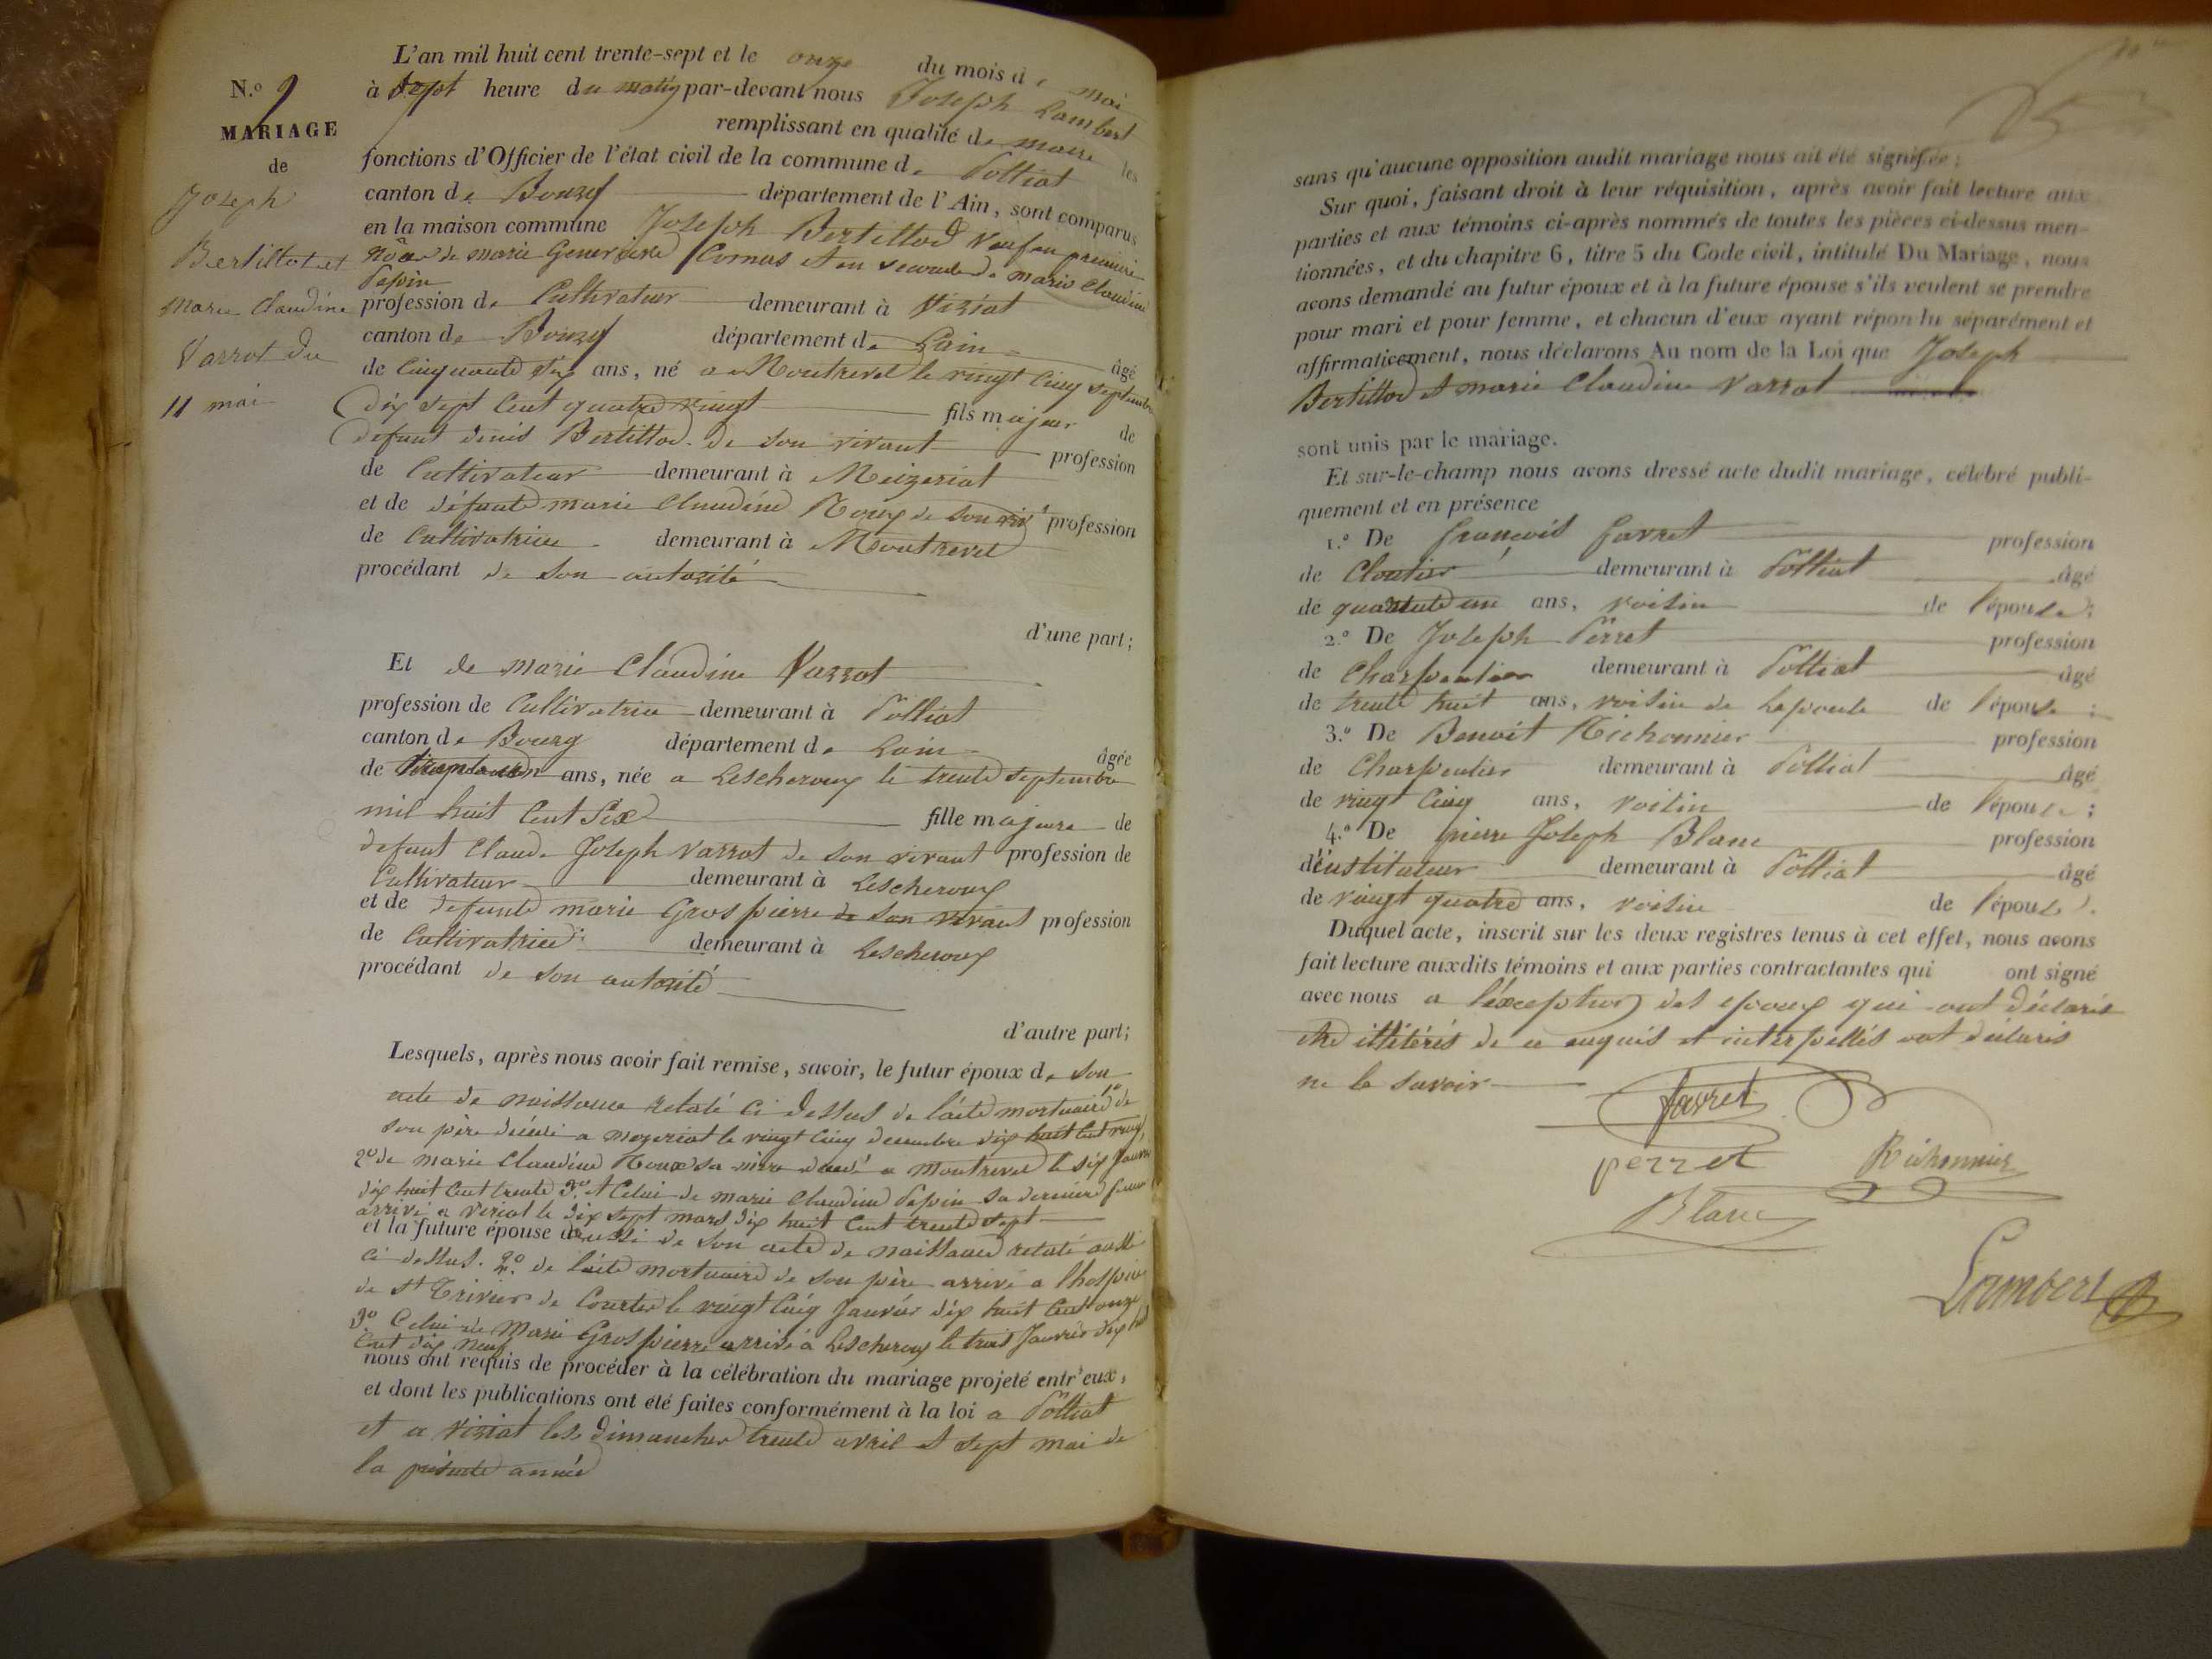 N.º 9
MARIAGE
de
Joseph
Bertillot et
Marie Claudine
Varrot du
11 mai
L'an mil huit cent trente-sept et le onze du mois de mai
à sept heure du matin par-devant nous Joseph Lambert
remplissant en qualité de maire les
fonctions d'Officier de l'état civil de la commune de Polliat
canton de Bourg département de l'Ain, sont comparus
en la maison commune Joseph Bertillod veuf en premiere
nôce de marie Genevieve Comas et en seconde de marie Claudine
Pepin
profession de Cultivateur demeurant à Viriat
canton de Bourg département de Lain âgé
de Cinquante six ans, né a Montrevel le vingt Cinq septembre
dix sept Cent quatre vingt fils majeur de
defunt denis Bertillod de son vivant profession
de Cultivateur demeurant à Meizeriat
et de défunte marie Claudine Roux de son viv.t profession
de Cultivatrice demeurant à Montrevel
procédant de son autorité
d'une part;
Et de marie Claudine Varrot
profession de Cultivatrice demeurant à Polliat
canton de Bourg département de Lain âgée
de ans, née a Lescheroux le trente septembre
mil huit Cent Six fille majeure de
defunt Claude Joseph Varrot de son vivant profession de
Cultivateur demeurant à Lescheroux
et de defunte marie Gros pierre de son vivant profession
de Cultivatrice demeurant à Lescheroux
procédant de son autorité
d'autre part;
Lesquels, après nous avoir fait remise, savoir, le futur époux de son
acte de naissance relaté ci dessus de l'acte mortuaire 1º de
son père décédé a mezeriat le vingt Cinq decembre dix huit Cent vingt
2º de marie Claudine Roux sa mère decedé a montrevel le six Janvier
dix huit Cent trente 3º et Celui de marie Claudine Pepin sa derniere femme
arrivé a viriat le dix sept mars dix huit Cent trente sept
et la future épouse aussi de son acte de naissance relaté aussi
ci dessus. 2º de l'acte mortuaire de son père arrivé a l'hospice
de St Trivier de Courtes le vingt Cinq Janvier dix huit Cent onze
3º Celui de Marie Gros pierre arrivé a Lescheroux le trois Janvier dix huit
Cent dix neuf
nous ont requis de procéder à la célébration du mariage projeté entr'eux,
et dont les publications ont été faites conformément à la loi a Polliat
et a viriat les dimanches trente avril et sept mai de
la présente année
sans qu'aucune opposition audit mariage nous ait été signifiée;
Sur quoi, faisant droit à leur réquisition, après avoir fait lecture aux
parties et aux témoins ci-après nommés de toutes les pièces ci-dessus men-
tionnées, et du chapitre 6, titre 5 du Code civil, intitulé Du Mariage, nous
avons demandé au futur époux et à la future épouse s'ils veulent se prendre
pour mari et pour femme, et chacun d'eux ayant répondu séparément et
affirmativement, nous déclarons Au nom de la Loi que Joseph
Bertillod et marie Claudine Varrot
sont unis par le mariage.
Et sur-le-champ nous avons dressé acte dudit mariage, célébré publi-
quement et en présence
1.º De françois favret profession
de Cloutier demeurant à Polliat âgé
de quarante un ans, voisin de l'épouse;
2.º De Joseph Perret profession
de Charpentier demeurant à Polliat âgé
de trente huit ans, voisin de Lepouse de l'épouse;
3.º De Benoit Richonnier profession
de Charpentier demeurant à Polliat âgé
de vingt Cinq ans, voisin de l'épouse;
4.º De pierre Joseph Blanc profession
d'instituteur demeurant à Polliat âgé
de vingt quatre ans, voisin de l'épouse.
Duquel acte, inscrit sur les deux registres tenus à cet effet, nous avons
fait lecture auxdits témoins et aux parties contractantes qui ont signé
avec nous a l'éxception des epoux qui ont déclarés
être illitérés de ce enquis et interpellés ont déclarés
ne le savoir
favret
perret Richonnier
Blanc
Lambert